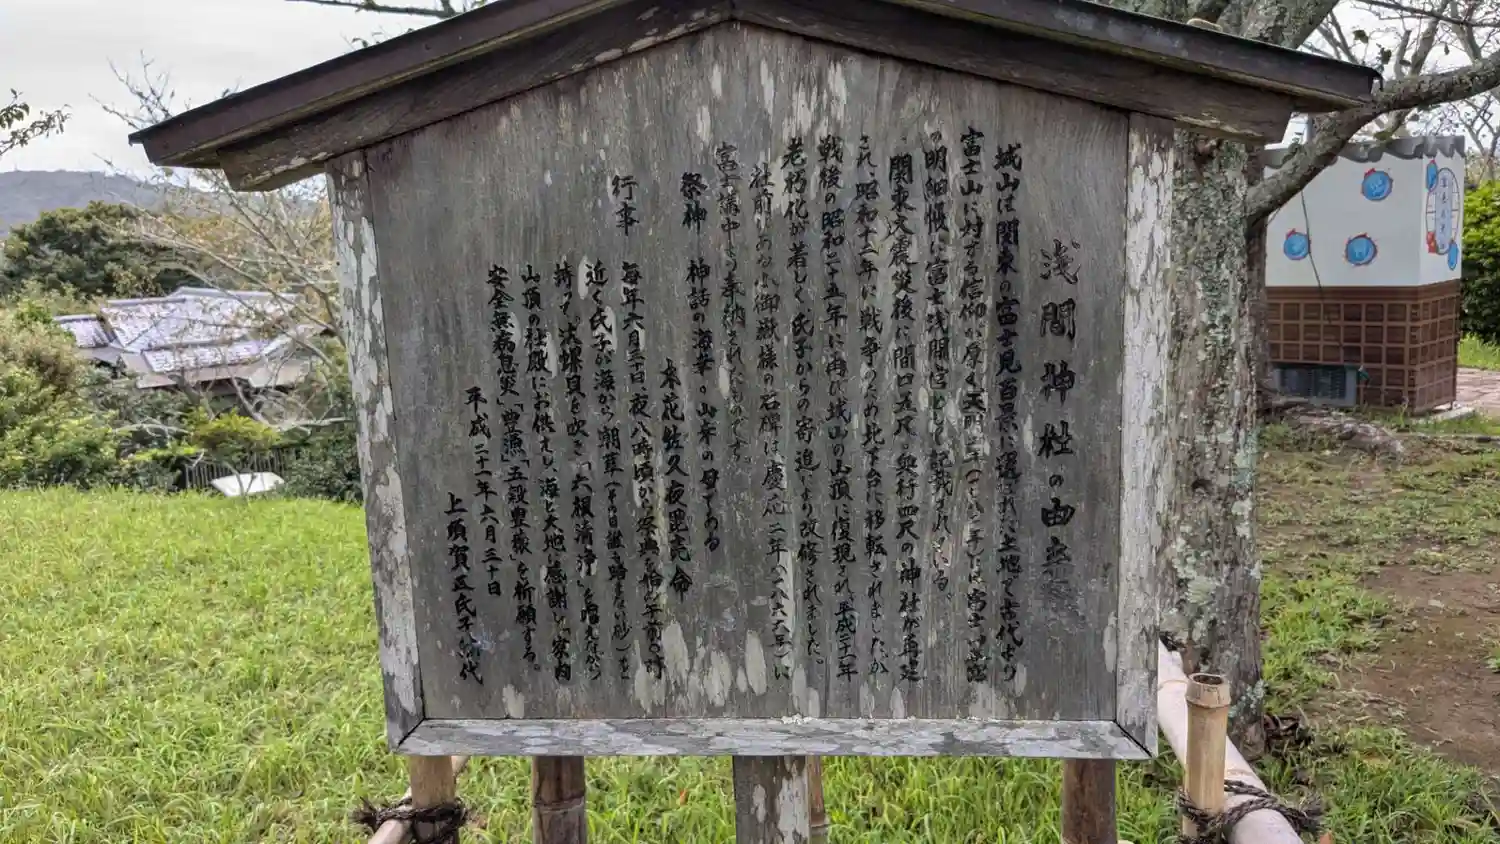 浅間神社の由来
城山は関東の富士見百景に選ばれた土地で古代より
富士山に対する信仰が厚く天明二年(一七八二年)には富士
の明細帳に富士浅間宮として記載されている。
関東大震災後に間口五尺、奥行四尺の神社が再建
され、昭和十二年に戦争のため北下台に移転されましたが
戦後の昭和二十五年に再び城山の山頂に復現され平成二十一年
老朽化が著しく氏子からの寄進により改修されました。
社前にある小御嶽様の石碑は慶応二年(一八六六年)に
富士講中より奉納されたものです。
祭神 神話の海幸・山幸の母である
木花佐久夜毘売命
行事 毎年六月三十日、夜八時頃から祭典を始め午前0時
近く氏子が海から潮草(その日誰も踏まない砂)を
持って法螺貝を吹き「六根清浄」を唱えながら
山頂の社殿にお供えし海と大地に感謝し「家内
安全無病息災」「豊漁」「五穀豊穣」を祈願する。
平成二十一年六月三十日
上須賀区氏子総代